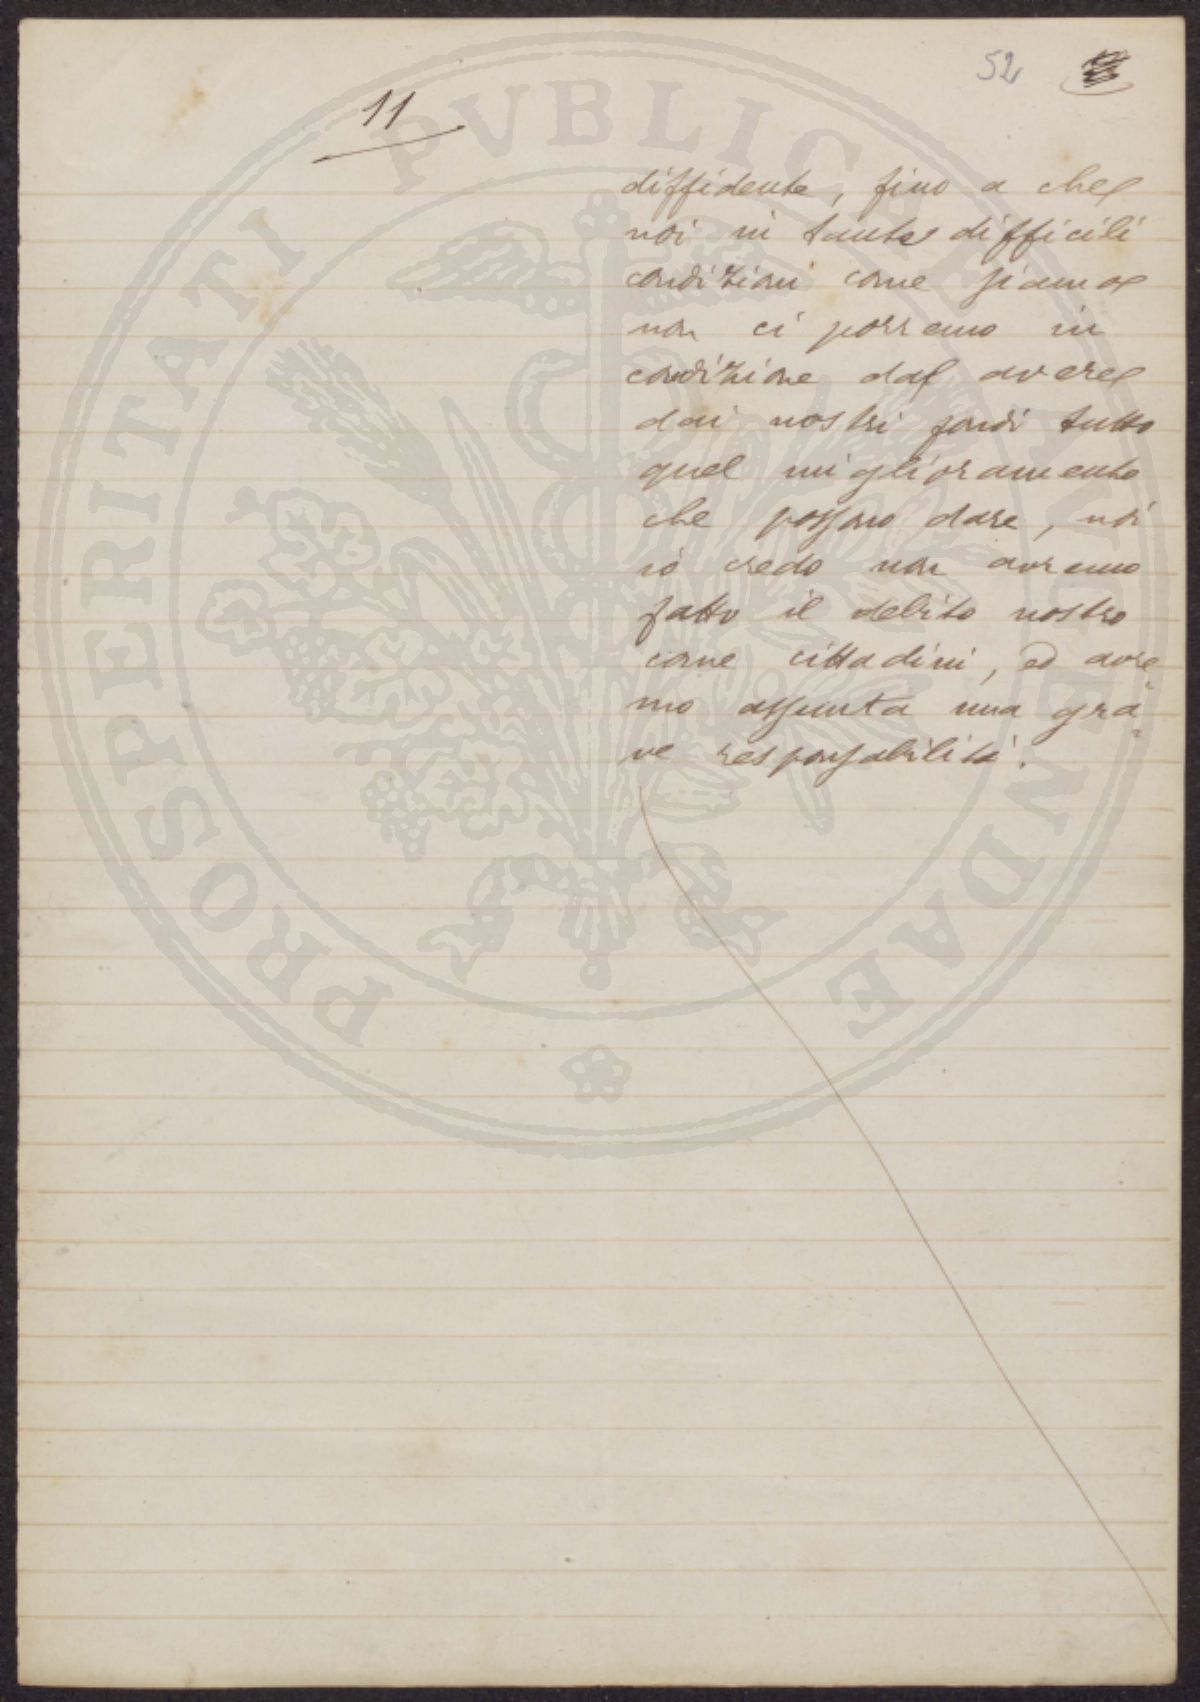 52
11
diffidente, fino a che
noi in tante difficili
condizioni come siamo
non ci porremo in
condizione da avere
dai nostri fondi tutto
quel miglioramento
che possono dare, noi
io credo non avremo
fatto il debito nostro
come cittadini, ed avre
mo assunta una gra
ve responsabilità.
PROSPERITATI PVBLICAE AVGENDAE